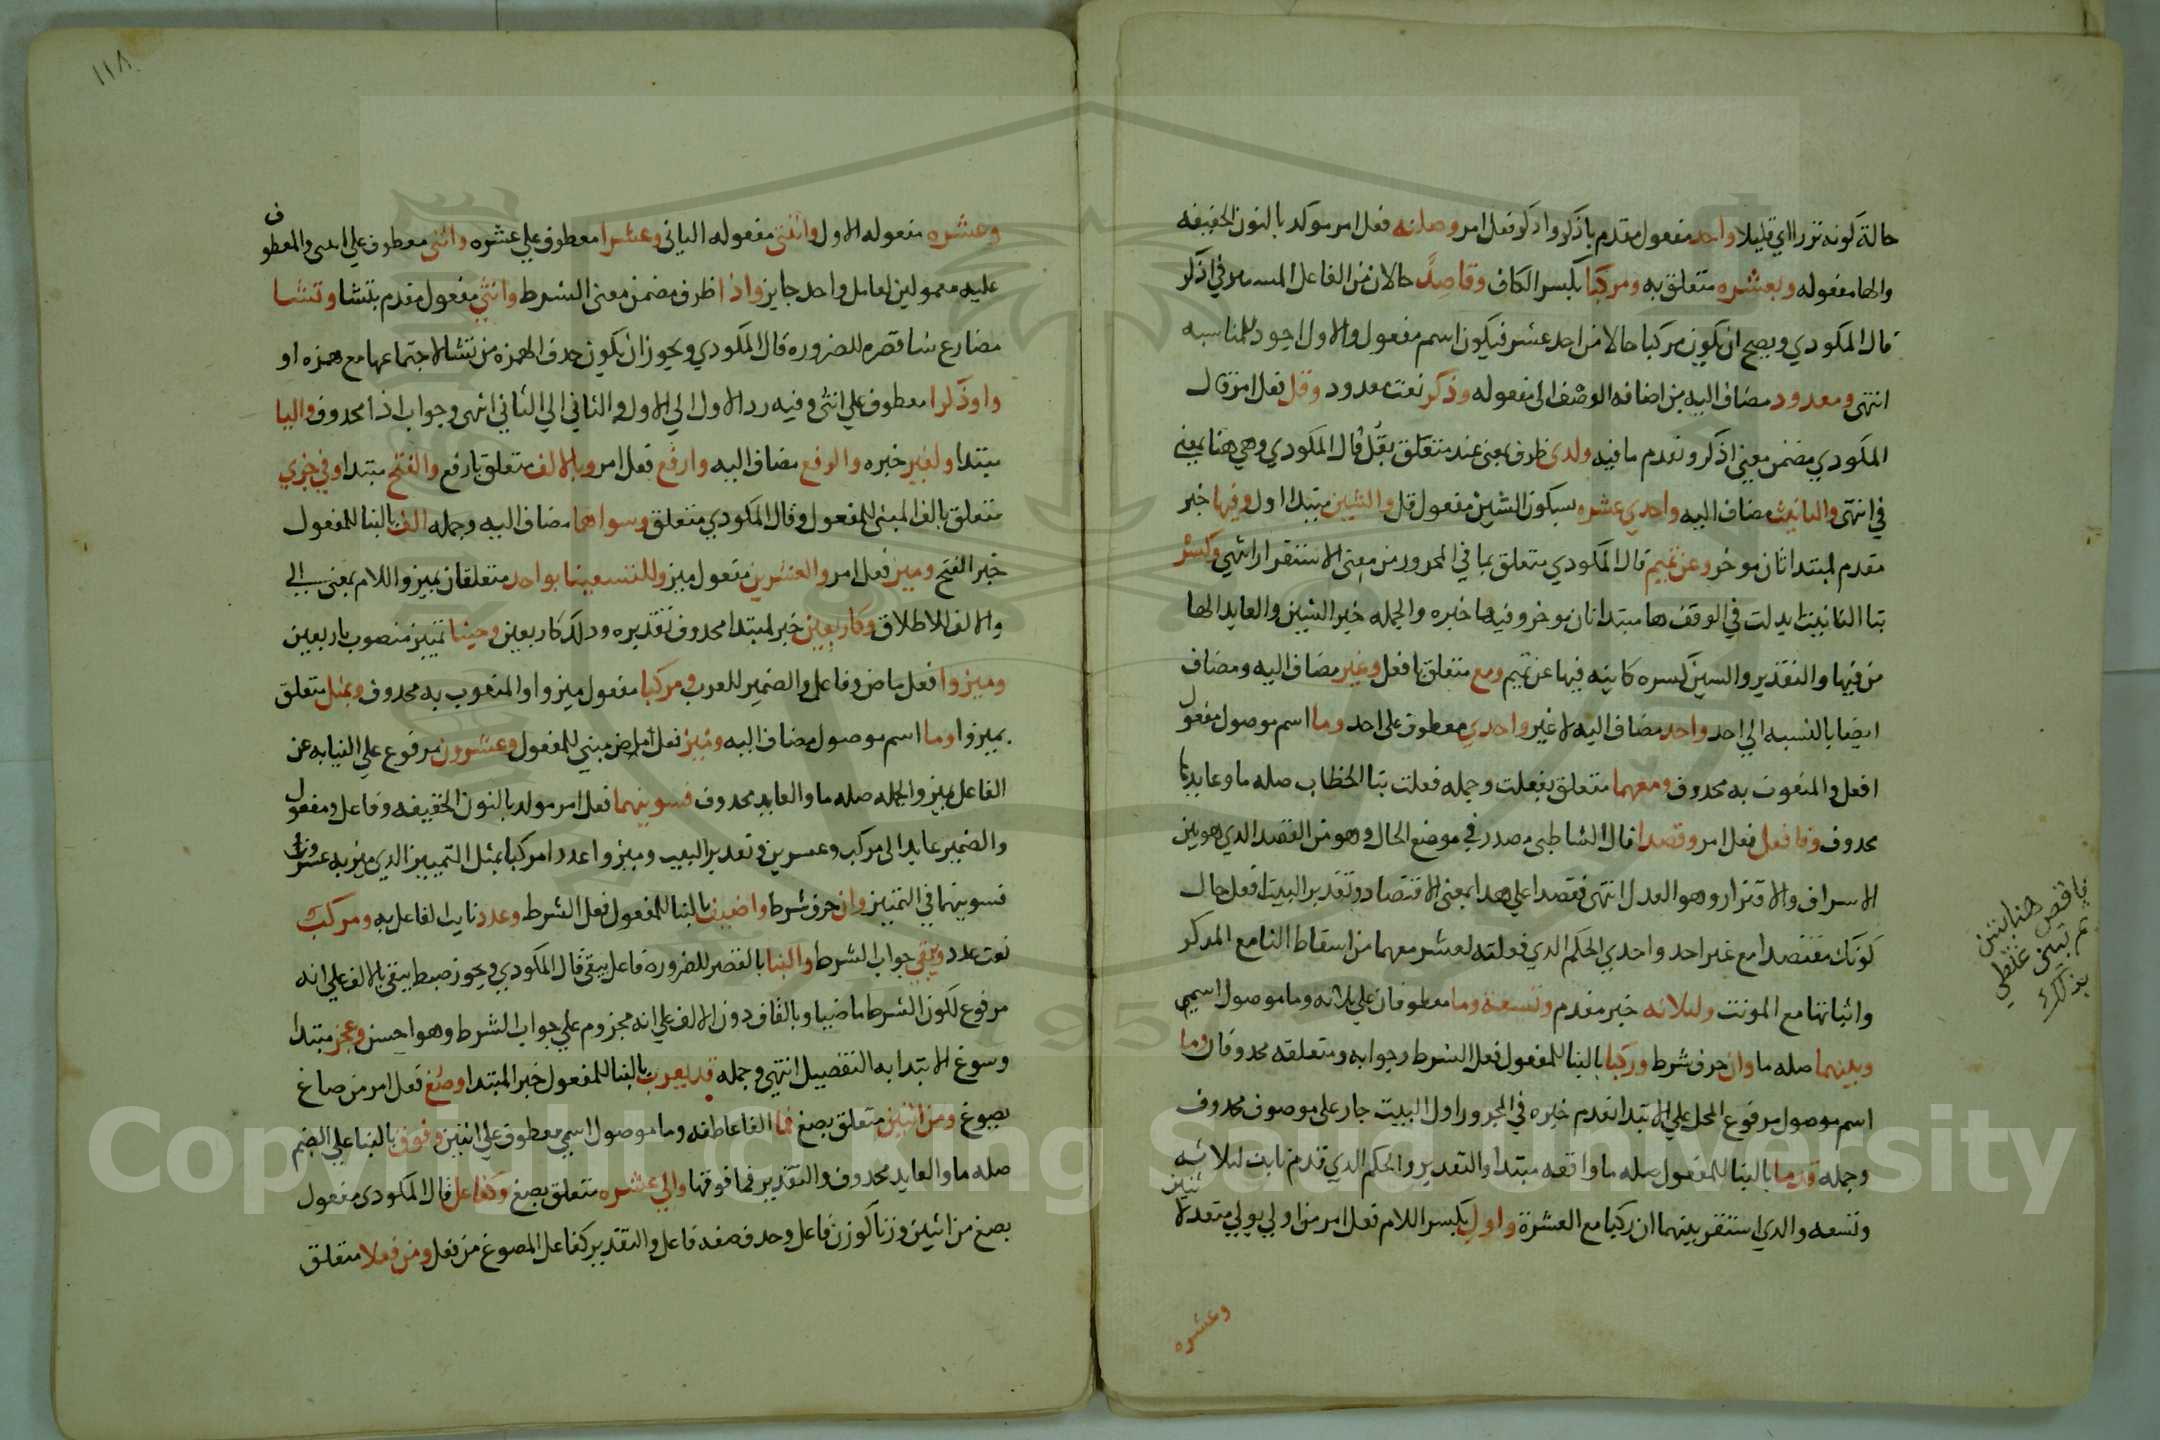 حالة كونه نزرا اي قليلا واحد مفعول مقدم باذكر واذكر فعل امر وصلنه فعل امر موكد بالنون الخفيفه
والها مفعوله وبعشره متعلق به ومركبا بكسر الكاف وقاصد حالان من الفاعل المستتر في اذكر
قال المكودي ويصح ان يكون مركبا حالا من احد عشر فيكون اسم مفعول والاول اجود للمناسبه
انتهى ومعدود مضاف اليه من اضافه الوصف الى مفعوله وذكر نعت معدود وقل فعل امر قال
المكودي مضمن معنى اذكر وتقدم ما فيه ولدى ظرف بمعنى عند متعلق بقل قال المكودي وهي هنا بمعنى
في انتهى والتانيث مضاف اليه واحدي عشره بسكون الشين مفعول قل والشين مبتدا اول وفيها خبر
مقدم لمبتدا ثان موخر وعن تميم قال المكودي متعلق بما في المجرور من معنى الاستقرار انتهي وكسر
بتا التانيث ابدلت في الوقف ها مبتدا ثان موخر وفيها خبره والجمله خبر الشين والعايد الها
من فيها والتقدير والشين كسره كاينه فيها عن تميم ومع متعلق بافعل وغير مضاف اليه ومضاف
ايضا بالنسبه الي احد واحد مضاف اليه لا غير واحدي معطوف على احد وما اسم موصول مفعول
افعل والمنعوت به محذوف ومعهما متعلق بفعلت وجمله فعلت بتا الخطاب صله ما وعايدها
محذوف وفافعل فعل امر وقصدا قال الشاطبي مصدر في موضع الحال وهو من القصد الذي هو بين
الاسراف والاقتار وهو العدل انتهى فقصدا علي هذا بمعنى الاقتصاد وتقدير البيت افعل حال
كونك مقتصدا مع غير احد واحدي الحكم الذي فعلته لعشر معهما من اسقاط التا مع المذكر
واثباتها مع المونث ولثلاثه خبر مقدم وتسعة وما معطوفان علي ثلاثه وما موصول اسمي
وبينهما صله ما وان حرف شرط وركبا بالبنا للمفعول فعل الشرط وجوابه ومتعلقه محذوفان وما
اسم موصول مرفوع المحل علي الابتدا تقدم خبره في المجرور اول البيت جار على موصوف محذوف
وجمله قدما بالبنا للمفعول صله ما واقعه مبتدا والتقدير والحكم الذي قدم ثابت لثلاثه
وتسعه والذي استقر بينهما ان ركبا مع العشرة واول بكسر اللام فعل امر من اولي يولي متعد لاثنين
وعشره
فافعل
وعشره مفعوله الاول واثنتي مفعوله الثاني وعشرا معطوف علي عشره واثني معطوف علي اثنتي والمعطوف
عليه معمولين لعامل واحد جايز واذا ظرف مضمن معنى الشرط وانثي مفعول مقدم بتشا وتشا
مضارع شا قصره للضروره قال المكودي ويجوز ان يكون حذف الهمزه من تشا لاجتماعها مع همزه او
واو ذكرا معطوف علي انثى وفيه رد الاول الي الاول والثاني الي الثاني انتهى وجواب اذا محذوف واليا
مبتدا ولغير خبره والرفع مضاف اليه وارفع فعل امر وبالالف متعلق بارفع والفتح مبتدا وفي جزي
متعلق بالف المبني للمفعول وقال المكودي متعلق وسواهما مضاف اليه وجمله الف بالبنا للمفعول
خبر الفتح وميز فعل امر والعشرين مفعول ميز وللتسعينا بواحد متعلقان بميز واللام بمعنى الي
والالف للاطلاق وكاربعين خبر لمبتدا محذوف تقديره وذلك كاربعين وحينا تمييز منصوب باربعين
وميزوا فعل ماض وفاعل والضمير للعرب ومركبا مفعول ميزوا والمنعوت به محذوف وبمثل متعلق
بميزوا وما اسم موصول مضاف اليه وميز فعل ماض مبني للمفعول وعشرون مرفوع علي النيابه عن
الفاعل بميز والجمله صله ما والعايد محذوف فسوينهما فعل امر موكد بالنون الخفيفه وفاعل ومفعول
والضمير عايد الى مركب وعشرين وتقدير البيت وميزوا عددا مركبا بمثل التمييز الذي ميز به عشرون
فسوينهما في التمييز وان حرف شرط واضيف بالبنا للمفعول فعل الشرط وعدد نايب الفاعل به ومركب
نعت عدد ويبقى جواب الشرط والبنا بالقصر للضروره فاعل يبقى قال المكودي ويجوز ضبط يبقى بالالف علي انه
مرفوع لكون الشرط ماضيا وبالقاف دون الالف علي انه مجزوم علي جواب الشرط وهو احسن وعجز مبتدا
وسوغ الابتدا به التفصيل انتهي وجمله قد يعرب بالبنا للمفعول خبر المبتدا وصغ فعل امر من صاغ
يصوغ ومن اثنين متعلق بصغ فما الفا عاطفه وما موصول اسمي معطوف علي اثنين وفوق بالبنا علي الضم
صله ما والعايد محذوف والتقدير فما فوقها والي عشره متعلق بصغ وكفاعل قال المكودي مفعول
بصغ من اثنين وزنا كوزن فاعل وحذف صفه فاعل والتقدير كفاعل المصوغ من فعل ومن فعلا متعلق
١١٨
Copyright © King Saud University
1957